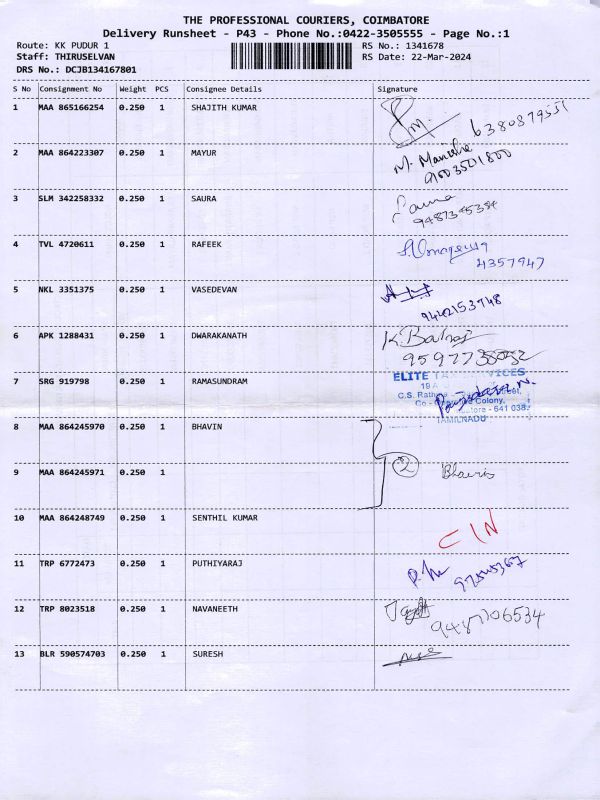 THE PROFESSIONAL COURIERS, COIMBATORE
Delivery Runsheet - P43 - Phone No.:0422-3505555 - Page No.:1
Route: KK PUDUR 1 RS No.: 1341678
Staff: THIRUSELVAN RS Date: 22-Mar-2024
DRS No.: DCJB134167801
S No Consignment No Weight PCS Consignee Details Signature
1 MAA 865166254 0.250 1 SHAJITH KUMAR
2 MAA 864223307 0.250 1 MAYUR
9003501800
3 SLM 342258332 0.250 1 SAURA
9487345384
4 TVL 4720611 0.250 1 RAFEEK
4357947
5 NKL 3351375 0.250 1 VASEDEVAN
9442153748
6 APK 1288431 0.250 1 DWARAKANATH
7 SRG 919798 0.250 1 RAMASUNDRAM
ELITE
C.S.
Colony,
641 038
TAMILNADU
8 MAA 864245970 0.250 1 BHAVIN
2
9 MAA 864245971 0.250 1
10 MAA 864248749 0.250 1 SENTHIL KUMAR
11 TRP 6772473 0.250 1 PUTHIYARAJ
12 TRP 8023518 0.250 1 NAVANEETH
9487706534
13 BLR 590574703 0.250 1 SURESH